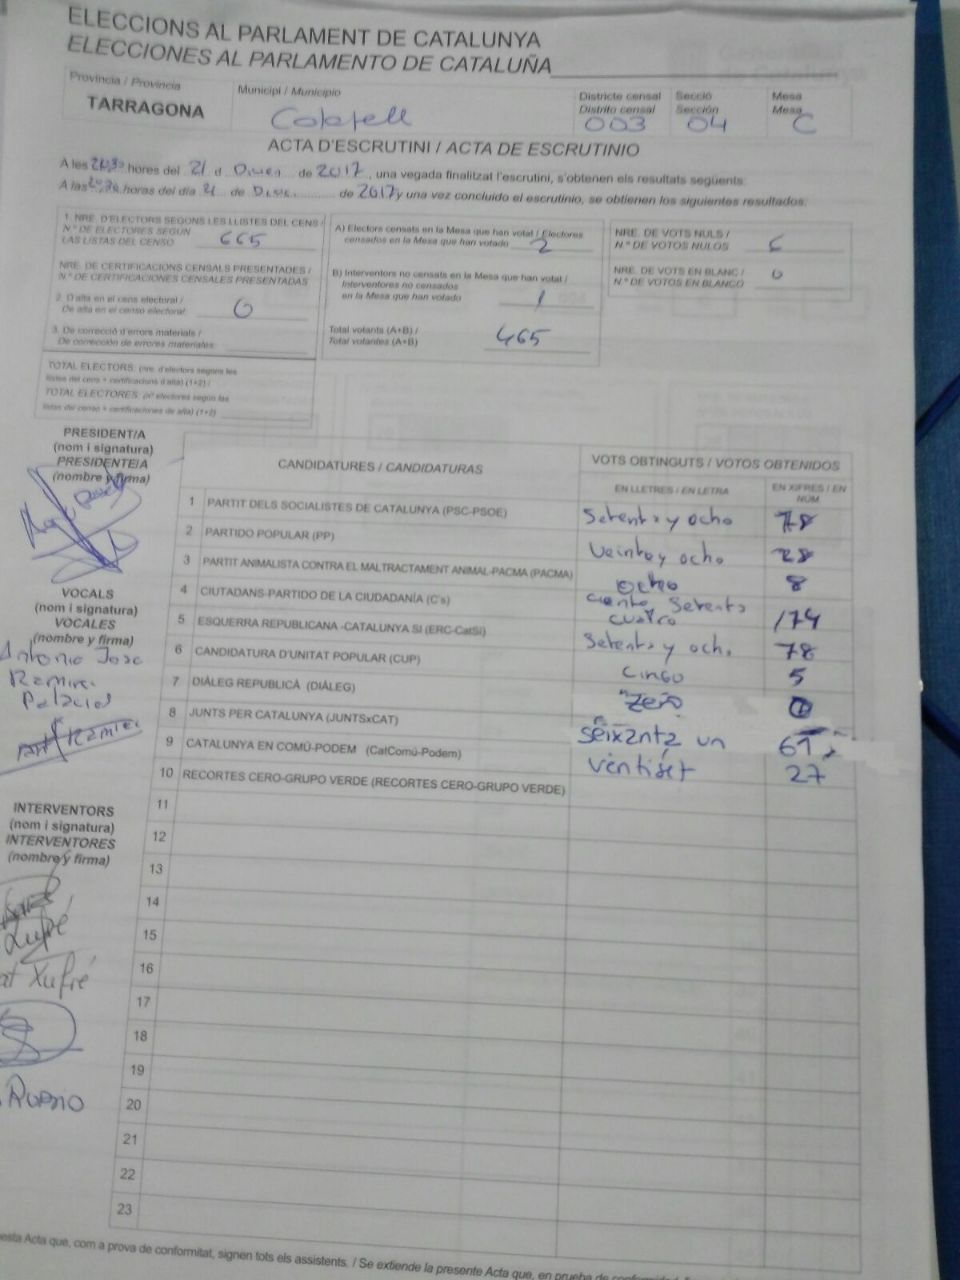 ELECCIONS AL PARLAMENT DE CATALUNYA
ELECCIONES AL PARLAMENTO DE CATALUÑA
Província / Provincia
TARRAGONA
Municipi / Municipio
Calafell
Districte censal
Distrito censal
003
Secció
Sección
04
Mesa
Mesa
C
ACTA D'ESCRUTINI / ACTA DE ESCRUTINIO
A les hores del 21 d de 2017, una vegada finalitzat l'escrutini, s'obtenen els resultats següents:
A las horas del día 21 de de 2017 y una vez concluido el escrutinio, se obtienen los siguientes resultados:
1. NRE. D'ELECTORS SEGONS LES LLISTES DEL CENS /
N.º DE ELECTORES SEGÚN
LAS LISTAS DEL CENSO 665
NRE. DE CERTIFICACIONS CENSALS PRESENTADES /
N.º DE CERTIFICACIONES CENSALES PRESENTADAS
2. D'alta en el cens electoral /
De alta en el censo electoral: 0
3. De correcció d'errors materials /
De corrección de errores materiales:
TOTAL ELECTORS: (nre. d'electors segons les
llistes del cens + certificacions d'alta) (1+2) /
TOTAL ELECTORES: (nº electores según las
listas del censo + certificaciones de alta) (1+2)
A) Electors censats en la Mesa que han votat / Electores
censados en la Mesa que han votado 2
B) Interventors no censats en la Mesa que han votat /
Interventores no censados
en la Mesa que han votado 1
Total votants (A+B) /
Total votantes (A+B) 465
NRE. DE VOTS NULS /
N.º DE VOTOS NULOS 6
NRE. DE VOTS EN BLANC /
N.º DE VOTOS EN BLANCO 0
PRESIDENT/A
(nom i signatura)
PRESIDENTE/A
(nombre y firma)
VOCALS
(nom i signatura)
VOCALES
(nombre y firma)
Antonio Jose
Ramirez
Palacios
INTERVENTORS
(nom i signatura)
INTERVENTORES
(nombre y firma)
Xufré
Xufré
Rubio
CANDIDATURES / CANDIDATURAS
VOTS OBTINGUTS / VOTOS OBTENIDOS
EN LLETRES / EN LETRA
EN XIFRES / EN NÚM.
1 PARTIT DELS SOCIALISTES DE CATALUNYA (PSC-PSOE) Setenta y ocho 78
2 PARTIDO POPULAR (PP) Veinte y ocho 28
3 PARTIT ANIMALISTA CONTRA EL MALTRACTAMENT ANIMAL-PACMA (PACMA) ocho 8
4 CIUTADANS-PARTIDO DE LA CIUDADANÍA (C's) ciento Setenta cuatro 174
5 ESQUERRA REPUBLICANA -CATALUNYA SÍ (ERC-CatSí) Setenta y ocho 78
6 CANDIDATURA D'UNITAT POPULAR (CUP) cinco 5
7 DIÀLEG REPUBLICÀ (DIÀLEG) zero 0
8 JUNTS PER CATALUNYA (JUNTSxCAT) seixanta un 61
9 CATALUNYA EN COMÚ-PODEM (CatComú-Podem) ventiset 27
10 RECORTES CERO-GRUPO VERDE (RECORTES CERO-GRUPO VERDE)
11
12
13
14
15
16
17
18
19
20
21
22
23
Acta que, com a prova de conformitat, signen tots els assistents. / Se extiende la presente Acta que, en prueba de conformidad,